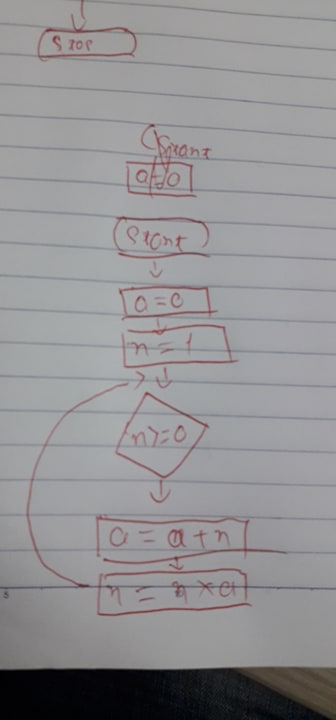 Stop
Start
a=0
Start
a=0
n=1
n>=0
a=a+n
n=n×a